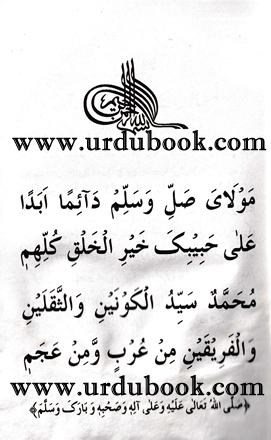 بسم الله الرحمن الرحيم
www.urdubook.com
مَوْلَایَ صَلِّ وَسَلِّمْ دَآئِمًا اَبَدًا
عَلٰی حَبِیْبِکَ خَیْرِ الْخَلْقِ کُلِّهِمٖ
مُحَمَّدٌ سَیِّدُ الْکَوْنَیْنِ وَالثَّقَلَیْنِ
وَالْفَرِیْقَیْنِ مِنْ عُرْبٍ وَّمِنْ عَجَمٖ
www.urdubook.com
﴿صَلَّی اللهُ تَعَالٰی عَلَیْهِ وَعَلٰی آلِهٖ وَصَحْبِهٖ وَبَارَکَ وَسَلَّمَ﴾